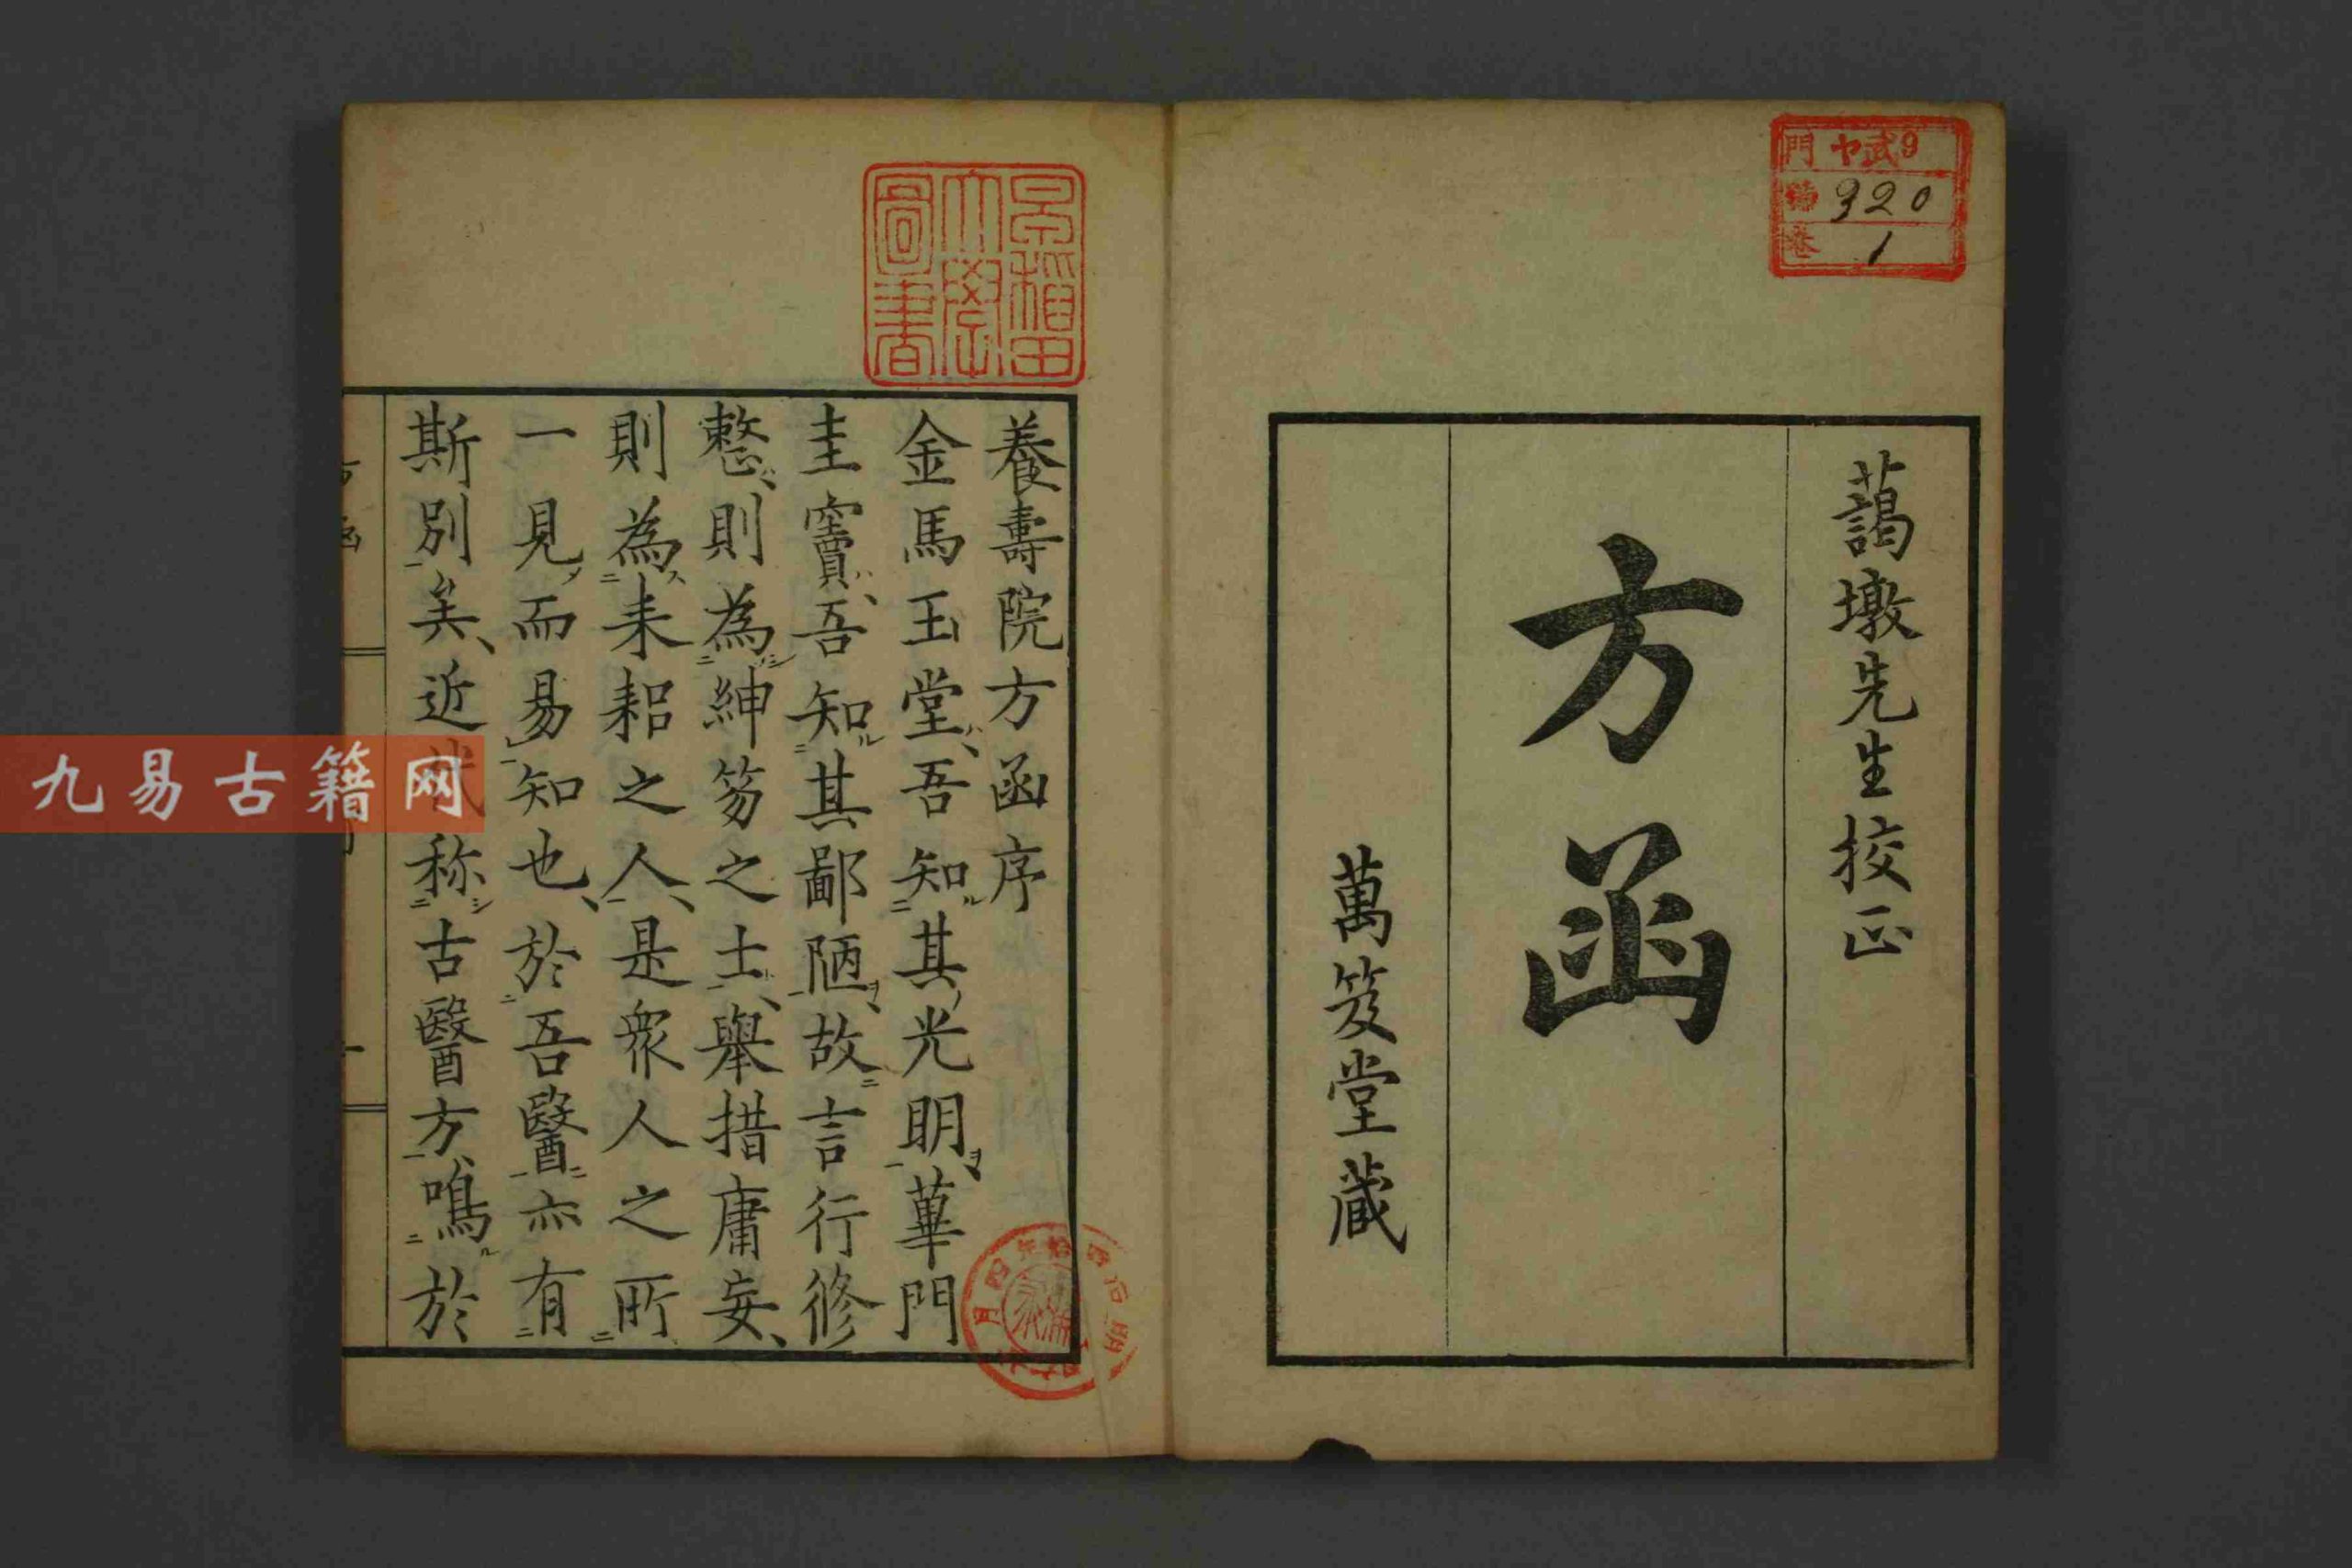 門 ヤ武9
號 320
卷 1
藹墩先生挍正
方函
萬笈堂藏
早稲田大學圖書
養壽院方函序
金馬玉堂、吾知其光明、蓽門
圭竇、吾知其鄙陋、故言行修
整、則為紳笏之士、舉措庸妄、
則為耒耜之人、是衆人之所
一見而易知也、於吾醫亦有
斯別矣、近
称古醫方、鳴於
九易古籍网